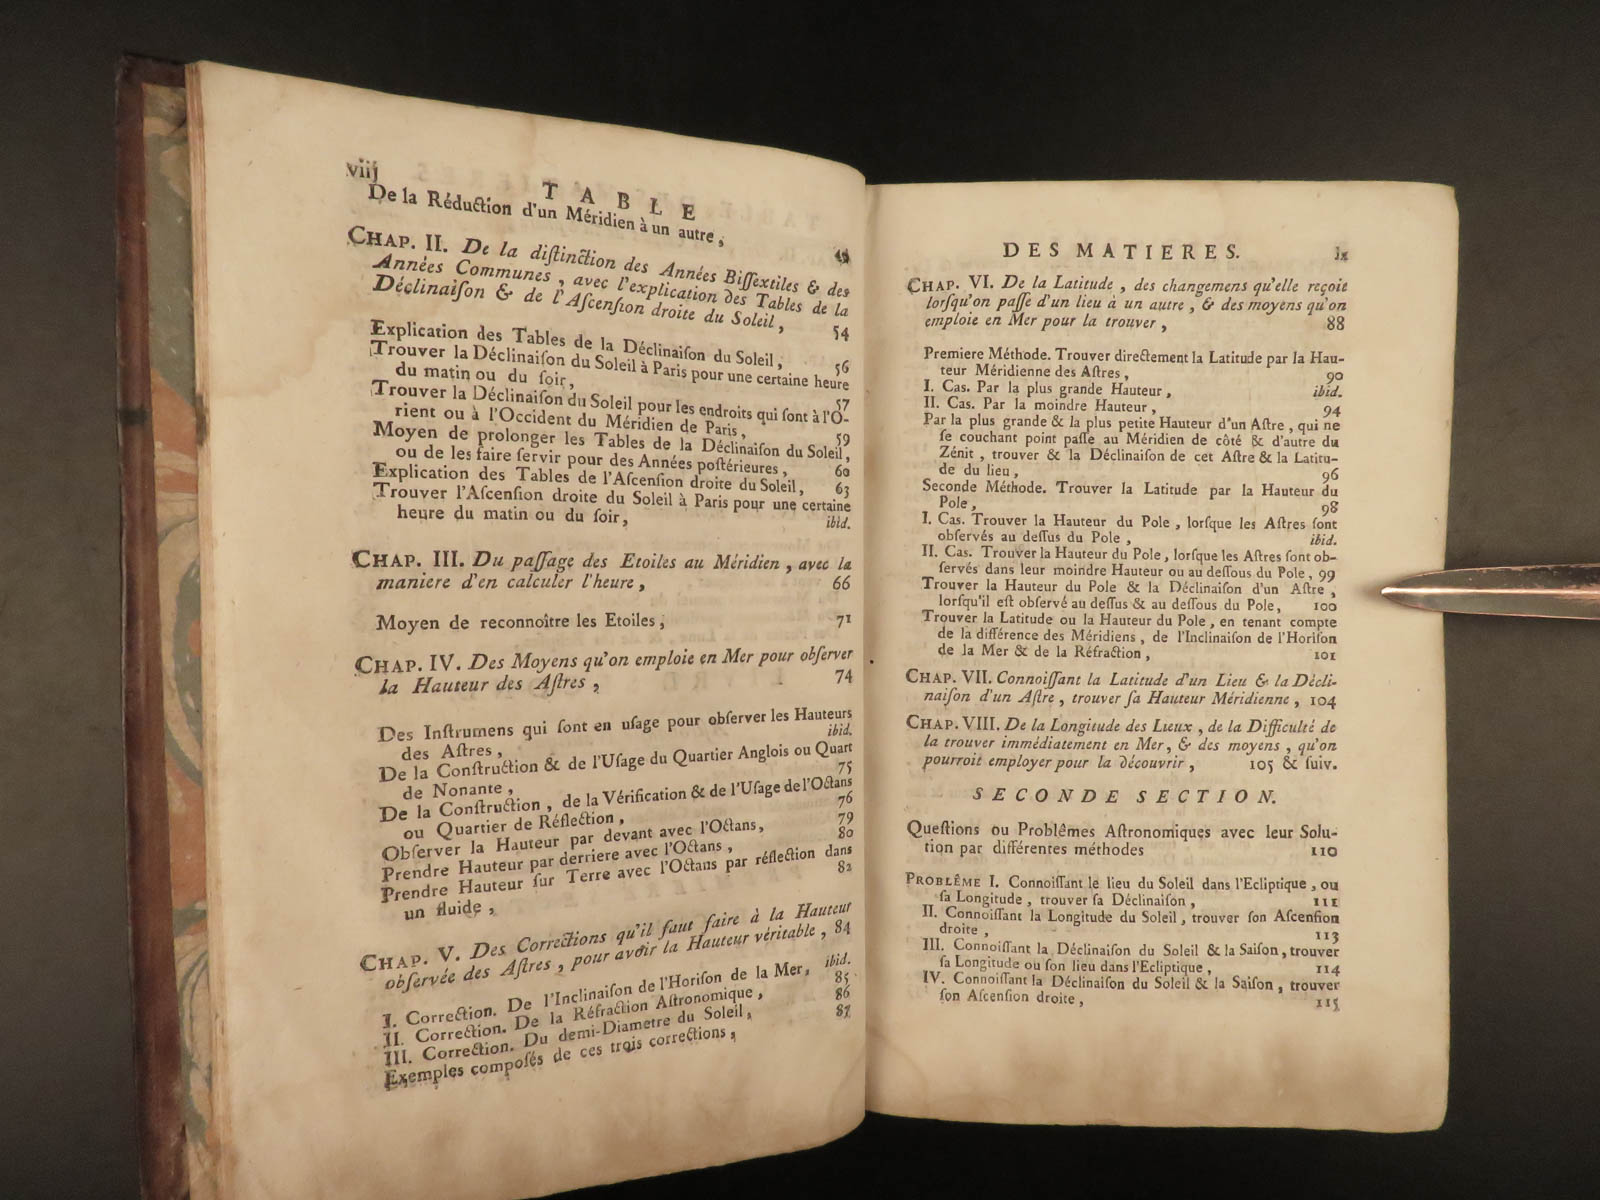 viij
TABLE
De la Réduction d'un Méridien à un autre,
CHAP. II. De la diſtinction des Années Biſſextiles & des
Années Communes, avec l'explication des Tables de la
Déclinaiſon & de l'Aſcenſion droite du Soleil, 54
Explication des Tables de la Déclinaiſon du Soleil, 56
Trouver la Déclinaiſon du Soleil à Paris pour une certaine heure
du matin ou du ſoir, 57
Trouver la Déclinaiſon du Soleil pour les endroits qui ſont à l'O-
rient ou à l'Occident du Méridien de Paris, 59
Moyen de prolonger les Tables de la Déclinaiſon du Soleil,
ou de les faire ſervir pour des Années poſtérieures, 60
Explication des Tables de l'Aſcenſion droite du Soleil, 63
Trouver l'Aſcenſion droite du Soleil à Paris pour une certaine
heure du matin ou du ſoir, ibid.
CHAP. III. Du paſſage des Etoiles au Méridien, avec la
maniere d'en calculer l'heure, 66
Moyen de reconnoître les Etoiles, 71
CHAP. IV. Des Moyens qu'on emploie en Mer pour obſerver
la Hauteur des Aſtres, 74
Des Inſtrumens qui ſont en uſage pour obſerver les Hauteurs
des Aſtres, ibid.
De la Conſtruction & de l'Uſage du Quartier Anglois ou Quart
de Nonante, 75
De la Conſtruction, de la Vérification & de l'Uſage de l'Octans
ou Quartier de Réflection, 76
Obſerver la Hauteur par devant avec l'Octans, 79
Prendre Hauteur par derriere avec l'Octans, 80
Prendre Hauteur ſur Terre avec l'Octans par réflection dans
un fluide, 82
CHAP. V. Des Corrections qu'il faut faire à la Hauteur
obſervée des Aſtres, pour avoir la Hauteur véritable, 84
I. Correction. De l'Inclinaiſon de l'Horiſon de la Mer, ibid.
II. Correction. De la Réfraction Aſtronomique, 85
III. Correction. Du demi-Diametre du Soleil, 86
Exemples compoſés de ces trois corrections, 87
DES MATIERES. ix
CHAP. VI. De la Latitude, des changemens qu'elle reçoit
lorſqu'on paſſe d'un lieu à un autre, & des moyens qu'on
emploie en Mer pour la trouver, 88
Premiere Méthode. Trouver directement la Latitude par la Hau-
teur Méridienne des Aſtres, 90
I. Cas. Par la plus grande Hauteur, ibid.
II. Cas. Par la moindre Hauteur, 94
Par la plus grande & la plus petite Hauteur d'un Aſtre, qui ne
ſe couchant point paſſe au Méridien de côté & d'autre du
Zénit, trouver & la Déclinaiſon de cet Aſtre & la Latitu-
de du lieu, 96
Seconde Méthode. Trouver la Latitude par la Hauteur du
Pole, 98
I. Cas. Trouver la Hauteur du Pole, lorſque les Aſtres ſont
obſervés au deſſus du Pole, ibid.
II. Cas. Trouver la Hauteur du Pole, lorſque les Aſtres ſont ob-
ſervés dans leur moindre Hauteur ou au deſſous du Pole, 99
Trouver la Hauteur du Pole & la Déclinaiſon d'un Aſtre,
lorſqu'il eſt obſervé au deſſus & au deſſous du Pole, 100
Trouver la Latitude ou la Hauteur du Pole, en tenant compte
de la différence des Méridiens, de l'Inclinaiſon de l'Horiſon
de la Mer & de la Réfraction, 101
CHAP. VII. Connoiſſant la Latitude d'un Lieu & la Décli-
naiſon d'un Aſtre, trouver ſa Hauteur Méridienne, 104
CHAP. VIII. De la Longitude des Lieux, de la Difficulté de
la trouver immédiatement en Mer, & des moyens, qu'on
pourroit employer pour la découvrir, 105 & ſuiv.
SECONDE SECTION.
Queſtions ou Problêmes Aſtronomiques avec leur Solu-
tion par différentes méthodes 110
PROBLÊME I. Connoiſſant le lieu du Soleil dans l'Ecliptique, ou
ſa Longitude, trouver ſa Déclinaiſon, 111
II. Connoiſſant la Longitude du Soleil, trouver ſon Aſcenſion
droite, 113
III. Connoiſſant la Déclinaiſon du Soleil & la Saiſon, trouver
ſa Longitude ou ſon lieu dans l'Ecliptique, 114
IV. Connoiſſant la Déclinaiſon du Soleil & la Saiſon, trouver
ſon Aſcenſion droite, 115